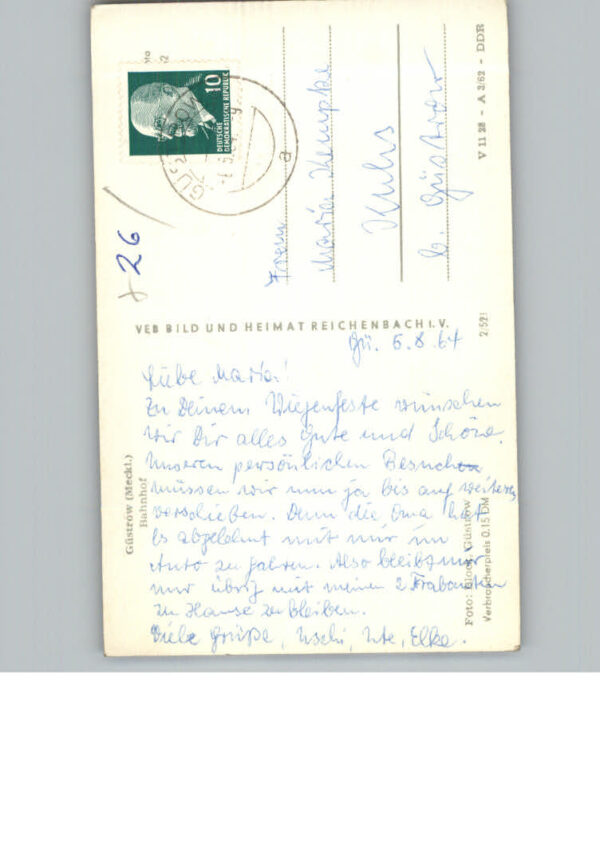 Gü. 5.8.64
Liebe Maria!
Zu Deinem Wiegenfeste wünschen
wir Dir alles Gute und Schöne.
Unseren persönlichen Besuch
müssen wir nun ja bis auf weiteres
verschieben. Denn die Oma hat
es abgelehnt mit mir im
Auto zu fahren. Also bleibt mir
nur übrig mit meinen 2 Trabanten
zu Hause zu bleiben.
Viele Grüße, Uschi, Ute, Elke.
VEB BILD UND HEIMAT REICHENBACH I. V.
Güstrow (Meckl.)
Bahnhof
Foto: Güstrow
Verbraucherpreis 0,15 DM
26
10
DEUTSCHE
DEMOKRATISCHE REPUBLIK
Frau
Maria Kempke
Kuhs
b. Güstrow
V 11 28 - A 3/62 - DDR